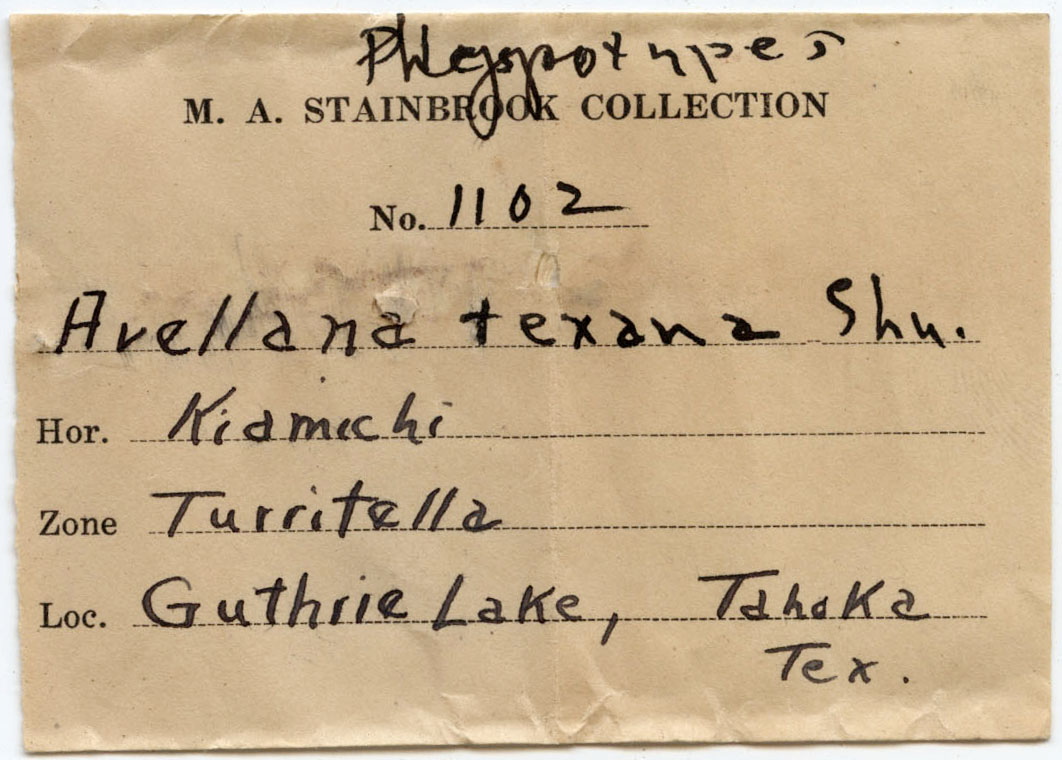 Plesiotypes
M. A. STAINBROOK COLLECTION
No. 1102
Avellana texana Shu.
Hor. Kiamichi
Zone Turritella
Loc. Guthrie Lake, Tahoka
Tex.